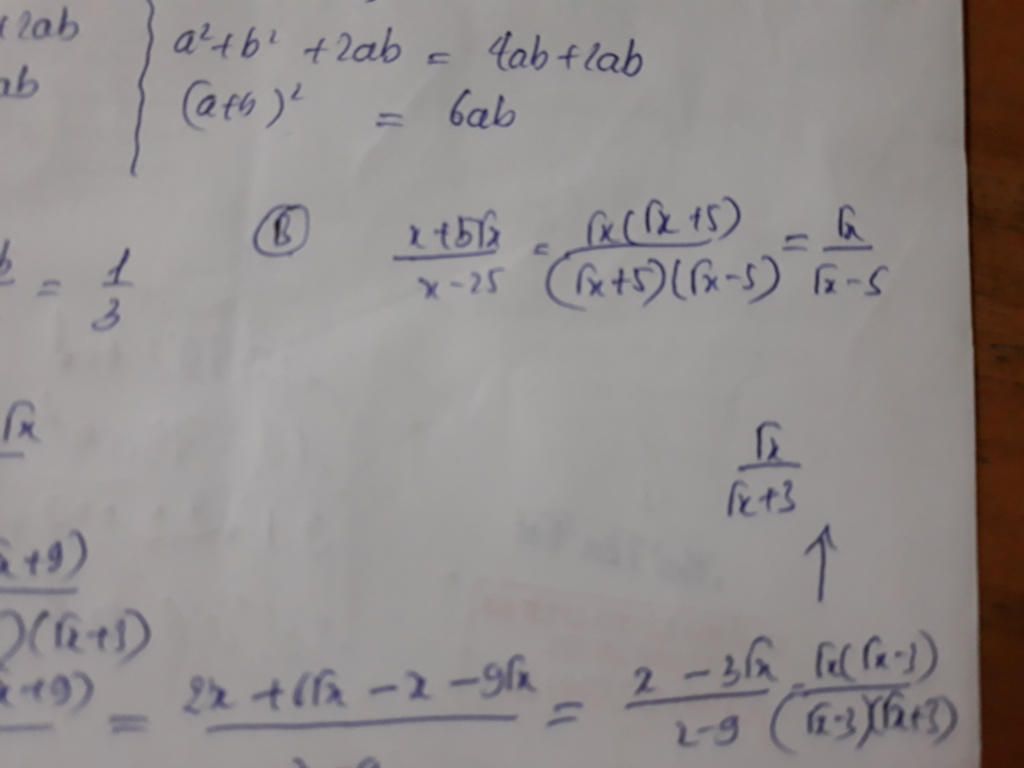 +2ab
ab
a²+b² +2ab = 4ab+2ab
(a+b)² = 6ab
b = 1/3
Ⓑ (x+5√x)/(x-25) = √x(√x+5)/(√x+5)(√x-5) = √x/(√x-5)
√x
√x/(√x+3)
↑
x+9)
)(√x+3)
x+9) = 2x+6√x-x-9√x = (x-3√x)/(x-9) = √x(√x-3)/(√x-3)(√x+3)